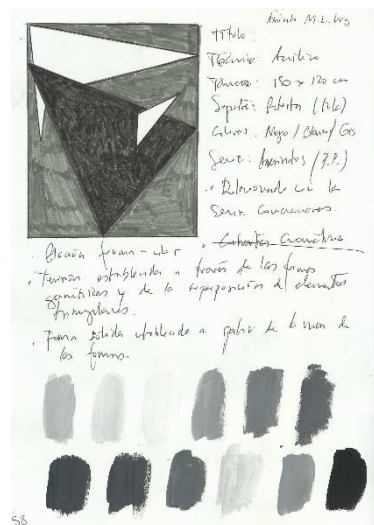 Título:
Técnica: Acrílico
Tamaño: 150 x 120 cm
Soporte: (tela)
Colores: Negro / Blanco / Gris
Serie: (B.P.)
· Relacionado con la
Serie
· Relación forma - color · Cromática
· Tensión establecida a través de las formas
geométricas y de la superposición de elementos
triangulares.
· Forma sólida establecida a partir de la unión de
las formas.
58